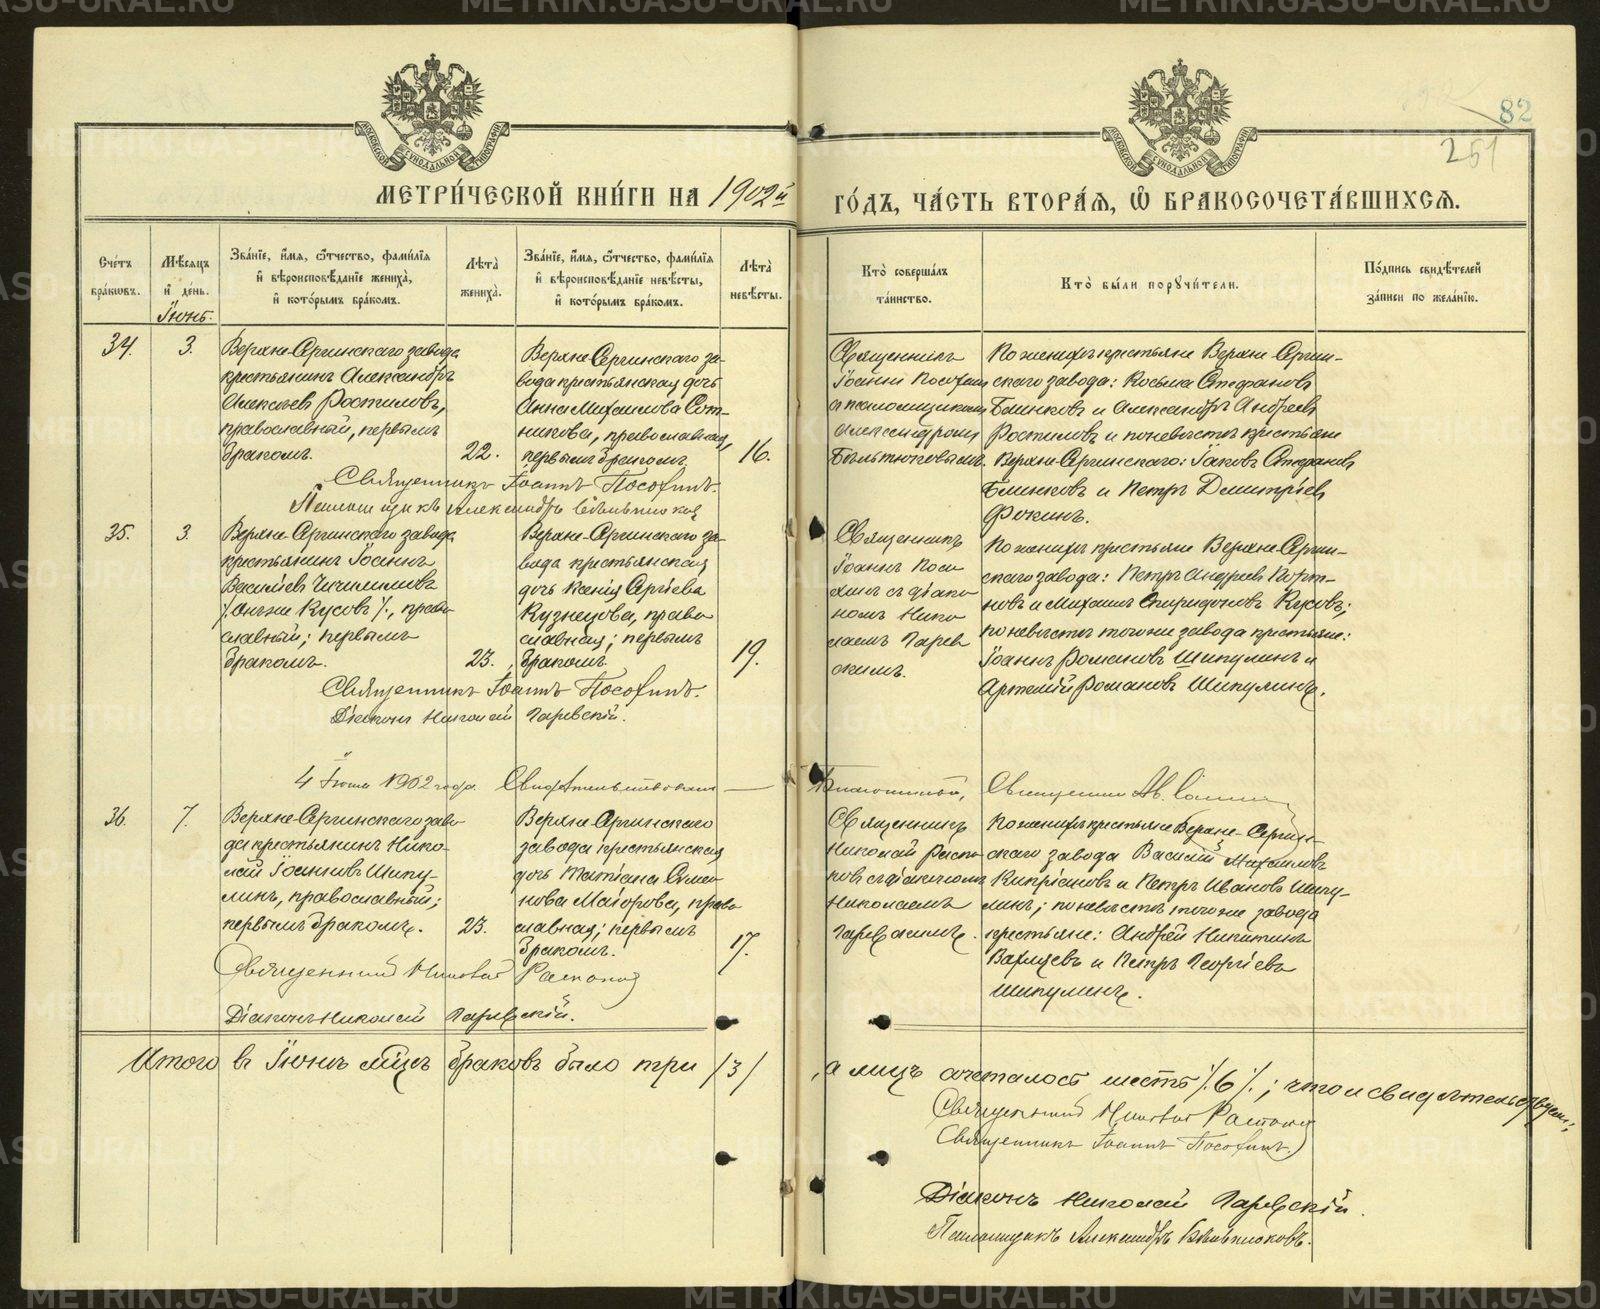 METRIKI.GASO-URAL.RU
82
261
МОСКОВСКОЙ СѴНОДАЛЬНОЙ ТИПОГРАФІИ
МОСКОВСКОЙ СѴНОДАЛЬНОЙ ТИПОГРАФІИ
МЕТРИ́ЧЕСКОЙ КНИ́ГИ НА 1902й ГО́ДЪ, ЧА́СТЬ ВТОРА́Я, Ѡ҆ БРАКОСОЧЕТА́ВШИХСЯ.
Сче́тъ
бра́кѡвъ.
Мѣ́сяцъ
и҆ де́нь.
Зва́нїе, и҆́мя, ѻ҆́тчество, фами́лїя
и҆ вѣроисповѣ́данїе жениха̀,
и҆ кото́рымъ бра́комъ.
Лѣта̀
жениха̀.
Зва́нїе, и҆́мя, ѻ҆́тчество, фами́лїя
и҆ вѣроисповѣ́данїе невѣ́сты,
и҆ кото́рымъ бра́комъ.
Лѣта̀
невѣ́сты.
Кто̀ соверша́лъ
та́инство.
Кто̀ бы́ли порꙋчи́тели.
По́дпись свидѣ́телей
за́писи по жела́нїю.
Іюнь.
34.
3.
Верхне-Сергинскаго завода
крестьянинъ Александръ
Алексѣевъ Ростиловъ,
православный, первымъ
бракомъ.
22.
Верхне-Сергинскаго за-
вода крестьянская дочь
Анна Михаилова Сот-
никова, православная,
первымъ бракомъ.
16.
Священникъ
Іоаннъ Посохин
съ псаломщикомъ
Александромъ
Бѣльтюковымъ.
По женихѣ крестьяне Верхне-Сергин-
скаго завода: Косьма Стефановъ
Блинковъ и Александръ Андреевъ
Ростиловъ и по невѣстѣ крестьяне
Верхне-Сергинскаго: Іаковъ Стефановъ
Блинковъ и Петръ Димитріевъ
Фокинъ.
Священникъ Іоаннъ Посохинъ.
Псаломщикъ Александръ Бѣльтюковъ
35.
3.
Верхне-Сергинскаго завода
крестьянинъ Іоаннъ
Василіевъ
/:онъ же Кусовъ:/, право-
славный; первымъ
бракомъ.
23.
Верхне-Сергинскаго за-
вода крестьянская
дочь Ксенія Сергіева
Кузнецова, право-
славная; первымъ
бракомъ.
19.
Священникъ
Іоаннъ Посо-
хинъ съ діако-
номъ Нико-
лаемъ Гарев-
скимъ.
По женихѣ крестьяне Верхне-Сергин-
скаго завода: Петръ Андреевъ Порт-
новъ и Михаилъ Спиридоновъ Кусовъ;
по невѣстѣ того же завода крестьяне:
Іоаннъ Романовъ Шипулинъ и
Артемій Романовъ Шипулинъ.
Священникъ Іоаннъ Посохинъ.
Діаконъ Николай Гаревскій.
4 Іюня 1902 года. Свидѣтельствовалъ — Благочинный, Священникъ Ал.
36.
7.
Верхне-Сергинскаго заво-
да крестьянинъ Нико-
лай Іоанновъ Шипу-
линъ, православный;
первымъ бракомъ.
23.
Верхне-Сергинскаго
завода крестьянская
дочь Татіана Семе-
нова Маіорова, право-
славная; первымъ
бракомъ.
17.
Священникъ
Николай Распо-
повъ съ діакономъ
Николаемъ
Гаревскимъ.
По женихѣ крестьяне Верхне-Сергин-
скаго завода Василій Михаиловъ
Кипріановъ и Петръ Ивановъ Шипу-
линъ; по невѣстѣ того же завода
крестьяне: Андрей Никитинъ
и Петръ Георгіевъ
Шипулинъ.
Священникъ Николай Распоповъ
Діаконъ Николай Гаревскій.
Итого въ Іюнѣ мцѣ браковъ было три /3/, а лицъ сочеталось шесть /:6:/; что и свидѣтельствуемъ:
Священникъ Николай Распоповъ
Священникъ Іоаннъ Посохинъ.
Діаконъ Николай Гаревскій.
Псаломщикъ Александръ Бѣльтюковъ.